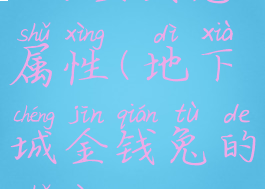 shǔ xìng dì xià
属性(地下
chéng jīn qián tù de
城金钱兔的